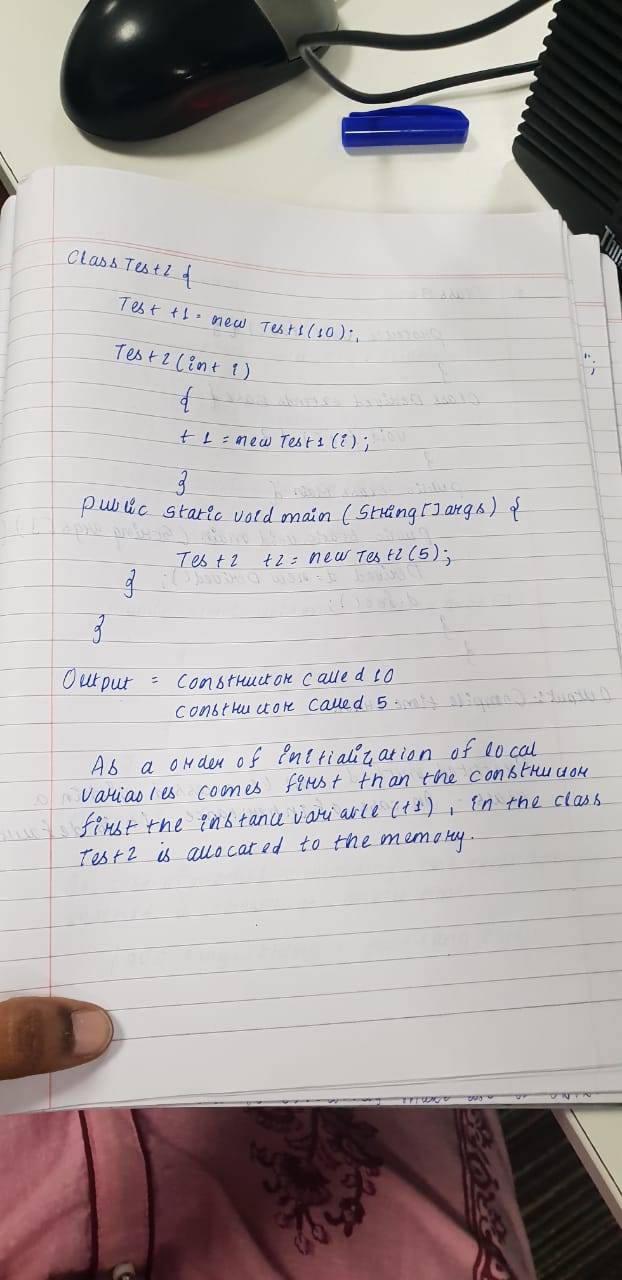 Class Test2 {
Test t1 = new Test1(10);
Test2(int i)
{
t1 = new Test1(i);
}
public static void main (String[] args) {
Test2 t2 = new Test2(5);
}
}
Output = Constructor called 10
Constructor called 5.
As a order of initialization of local
variables comes first than the constructor
first the instance variable (t1), in the class
Test2 is allocated to the memory.
";
Thin